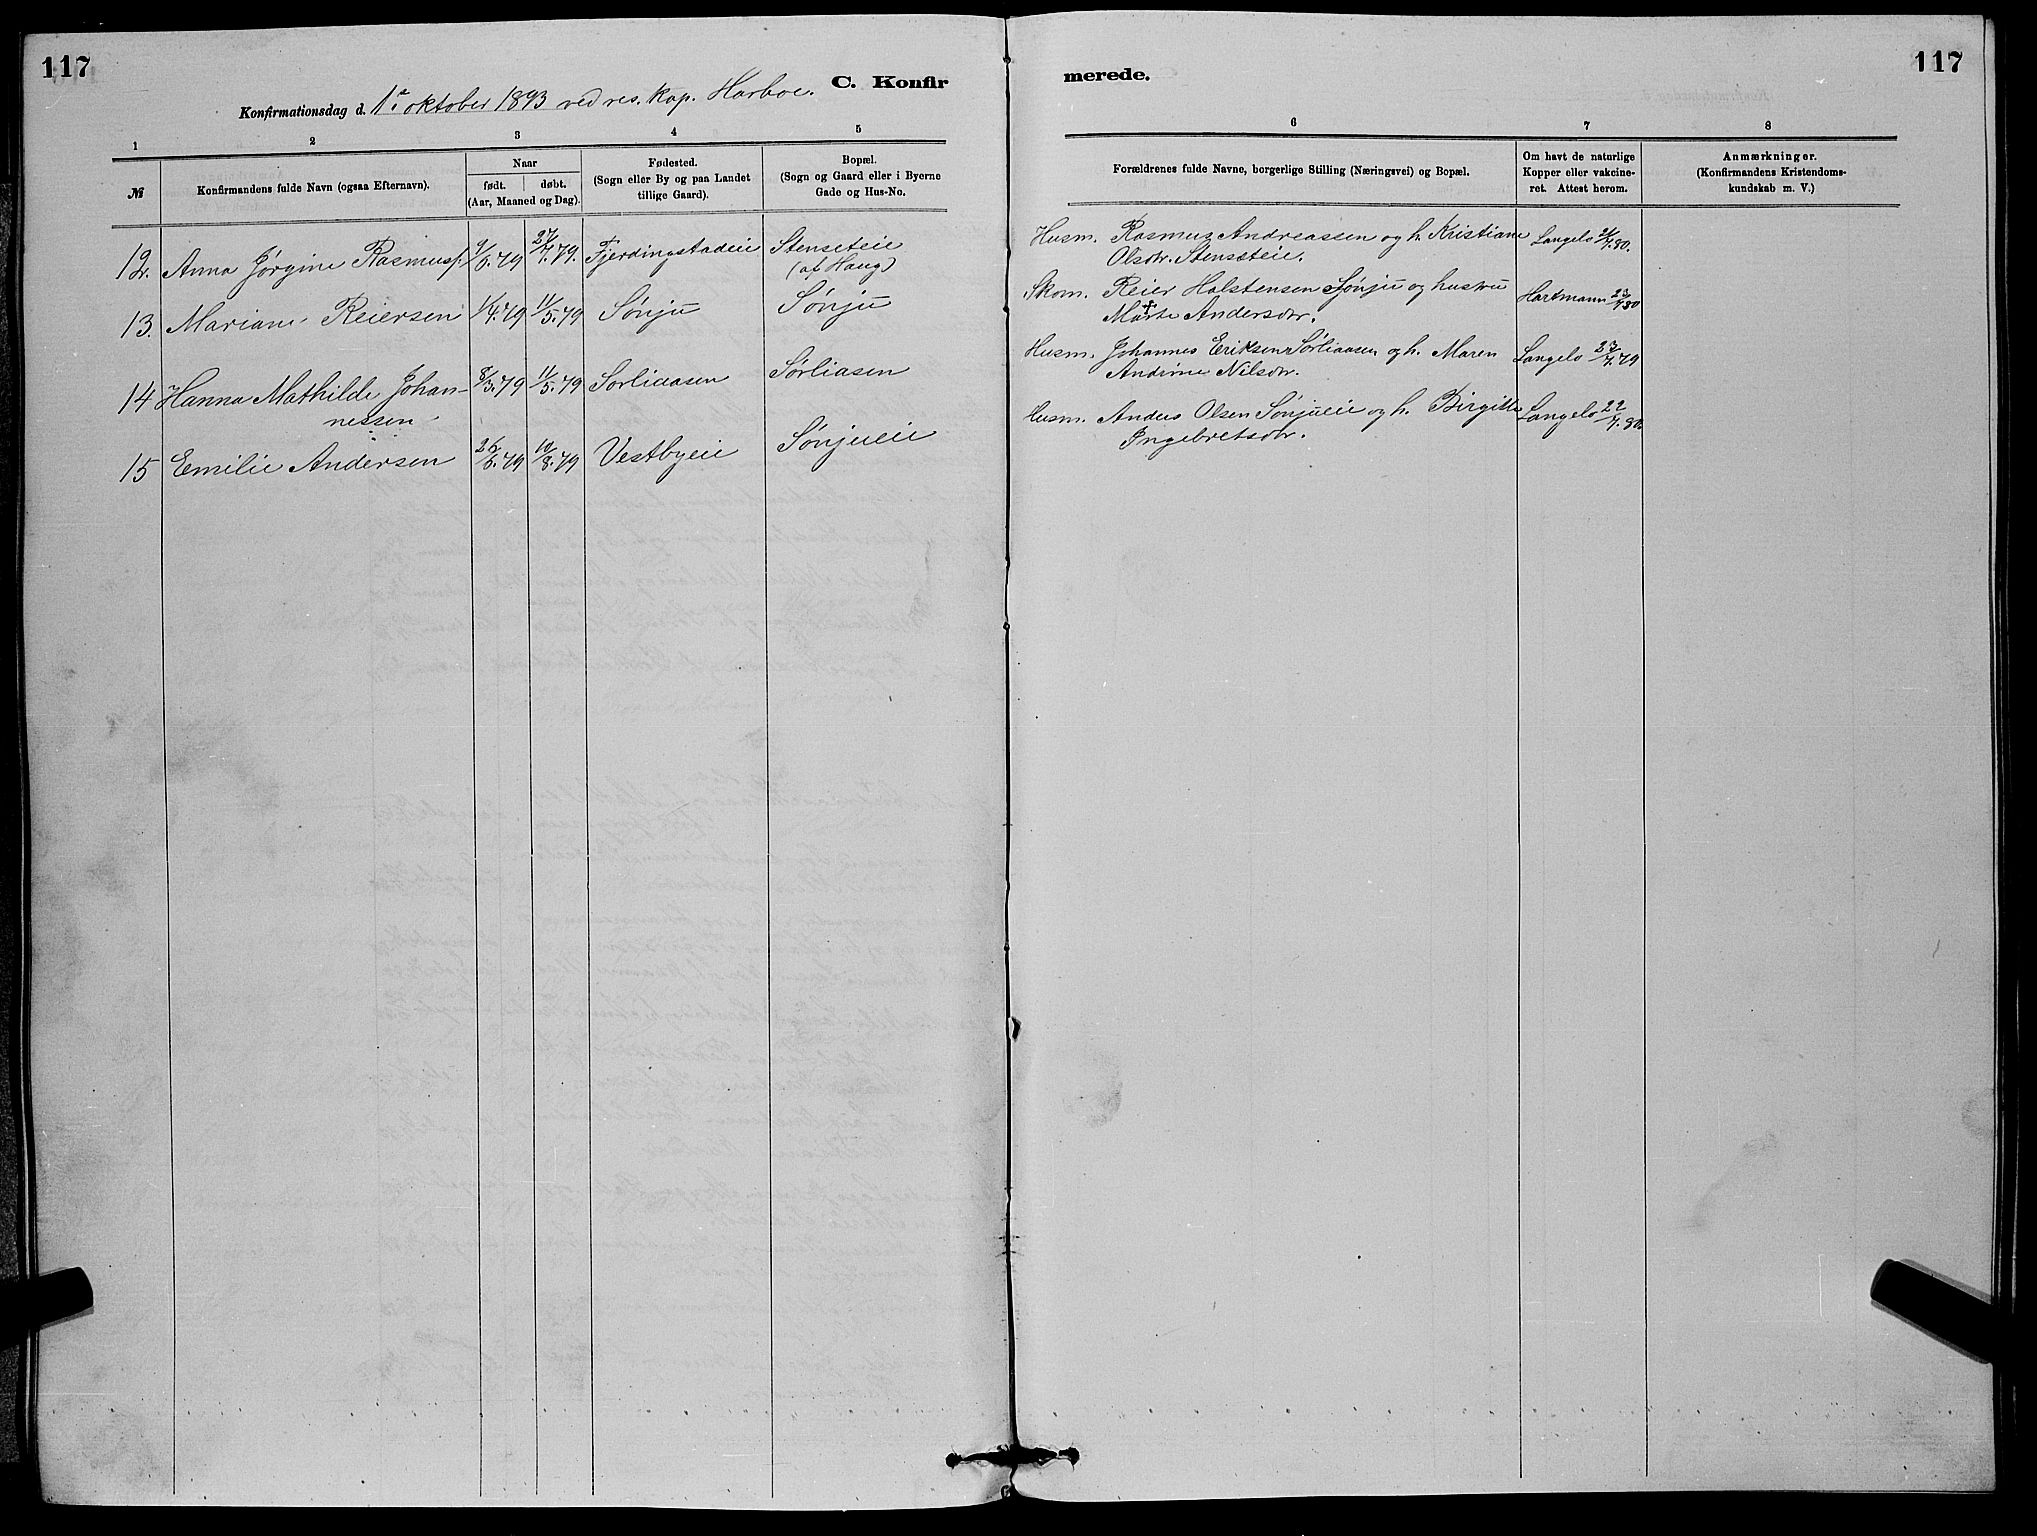 117
C. Konfir
Konfirmationsdag d. 1ste oktober 1893 ved res. kap. Harboe.
1 2 3 4 5
№
Konfirmandens fulde Navn (ogsaa Efternavn).
Naar
født. døbt.
(Aar, Maaned og Dag).
Fødested.
(Sogn eller By og paa Landet
tillige Gaard).
Bopæl.
(Sogn og Gaard eller i Byerne
Gade og Hus-No.
12. Anna Jørgine Rasmuss. 9/6.79 27/7.79. Fjerdingstadeie Stenseteie
(af Haug)
13. Mariane Reiersen 1/4.79 11/5.79 Sønju Sønju
14 Hanna Mathilde Johan-
nessen. 8/3.79 11/5.79 Sørliaasen Sørliasen
15 Emilie Andersen 26/6.79 10/8.79 Vestbyeie Sønjueie
117
merede.
6 7 8
Forældrenes fulde Navne, borgerlige Stilling (Næringsvei) og Bopæl.
Om havt de naturlige
Kopper eller vakcine-
ret. Attest herom.
Anmærkninger.
(Konfirmandens Kristendoms-
kundskab m. V.)
Husm. Rasmus Andreassen og h. Kristiane Langelo 80.
Olsdtr. Stenseteie.
Skom. Reier Halstensen Sønju og hustru Hartmann 23/7.80
Marte Andersdtr.
Husm. Johannes Eriksen Sørliaasen og h. Maren Langelo 23/7.79
Andrine Nilsdtr.
Husm. Anders Olsen Sønjueie og h. Birgitte Langelo 22/7.80.
Ingebretsdtr.